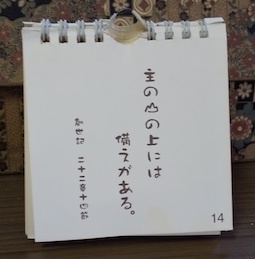 主の山の上には
備えがある。
創世記 二十二章十四節
14